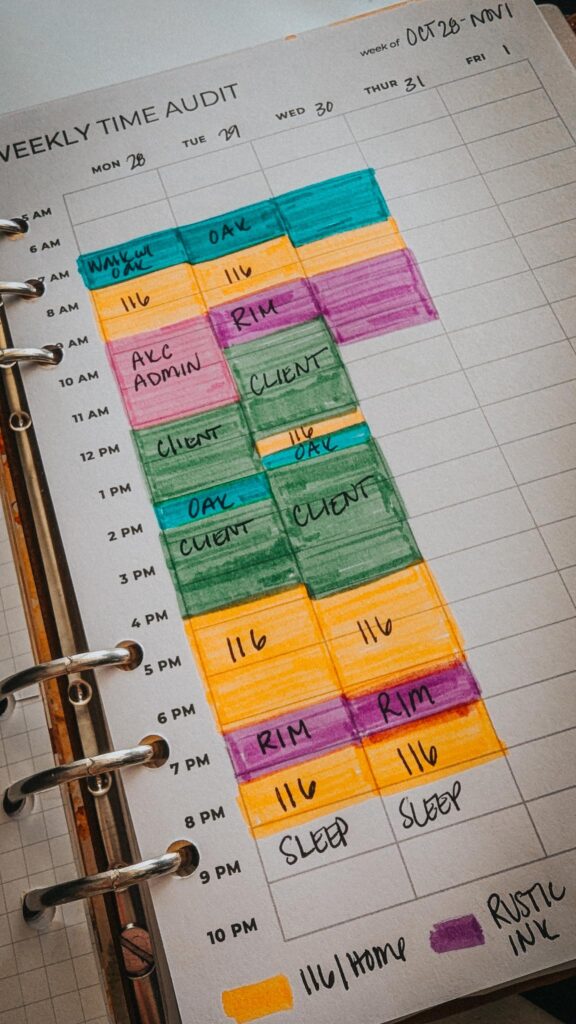 week of OCT 28-NOV 1
WEEKLY TIME AUDIT
MON 28
TUE 29
WED 30
THUR 31
FRI 1
5 AM
6 AM
7 AM
8 AM
9 AM
10 AM
11 AM
12 PM
1 PM
2 PM
3 PM
4 PM
5 PM
6 PM
7 PM
8 PM
9 PM
10 PM
OAK
116
AKC
ADMIN
CLIENT
OAK
CLIENT
116
RIM
116
SLEEP
OAK
116
RIM
CLIENT
116
OAK
CLIENT
116
RIM
116
SLEEP
116/HOME
RUSTIC
INK